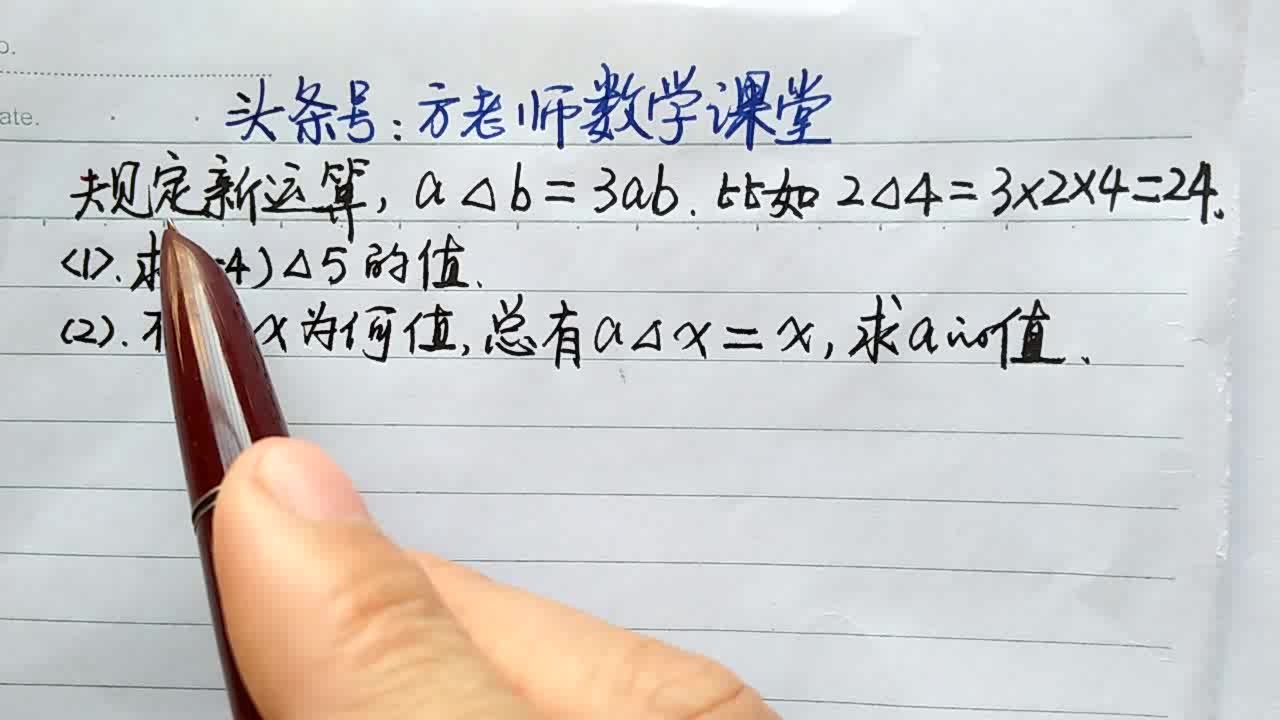 o.
ate.
头条号:方老师数学课堂
规定新运算, a△b=3ab. 比如 2△4=3×2×4=24.
<1>.求 -4)△5的值.
(2).不 x为何值,总有a△x=x,求a的值.